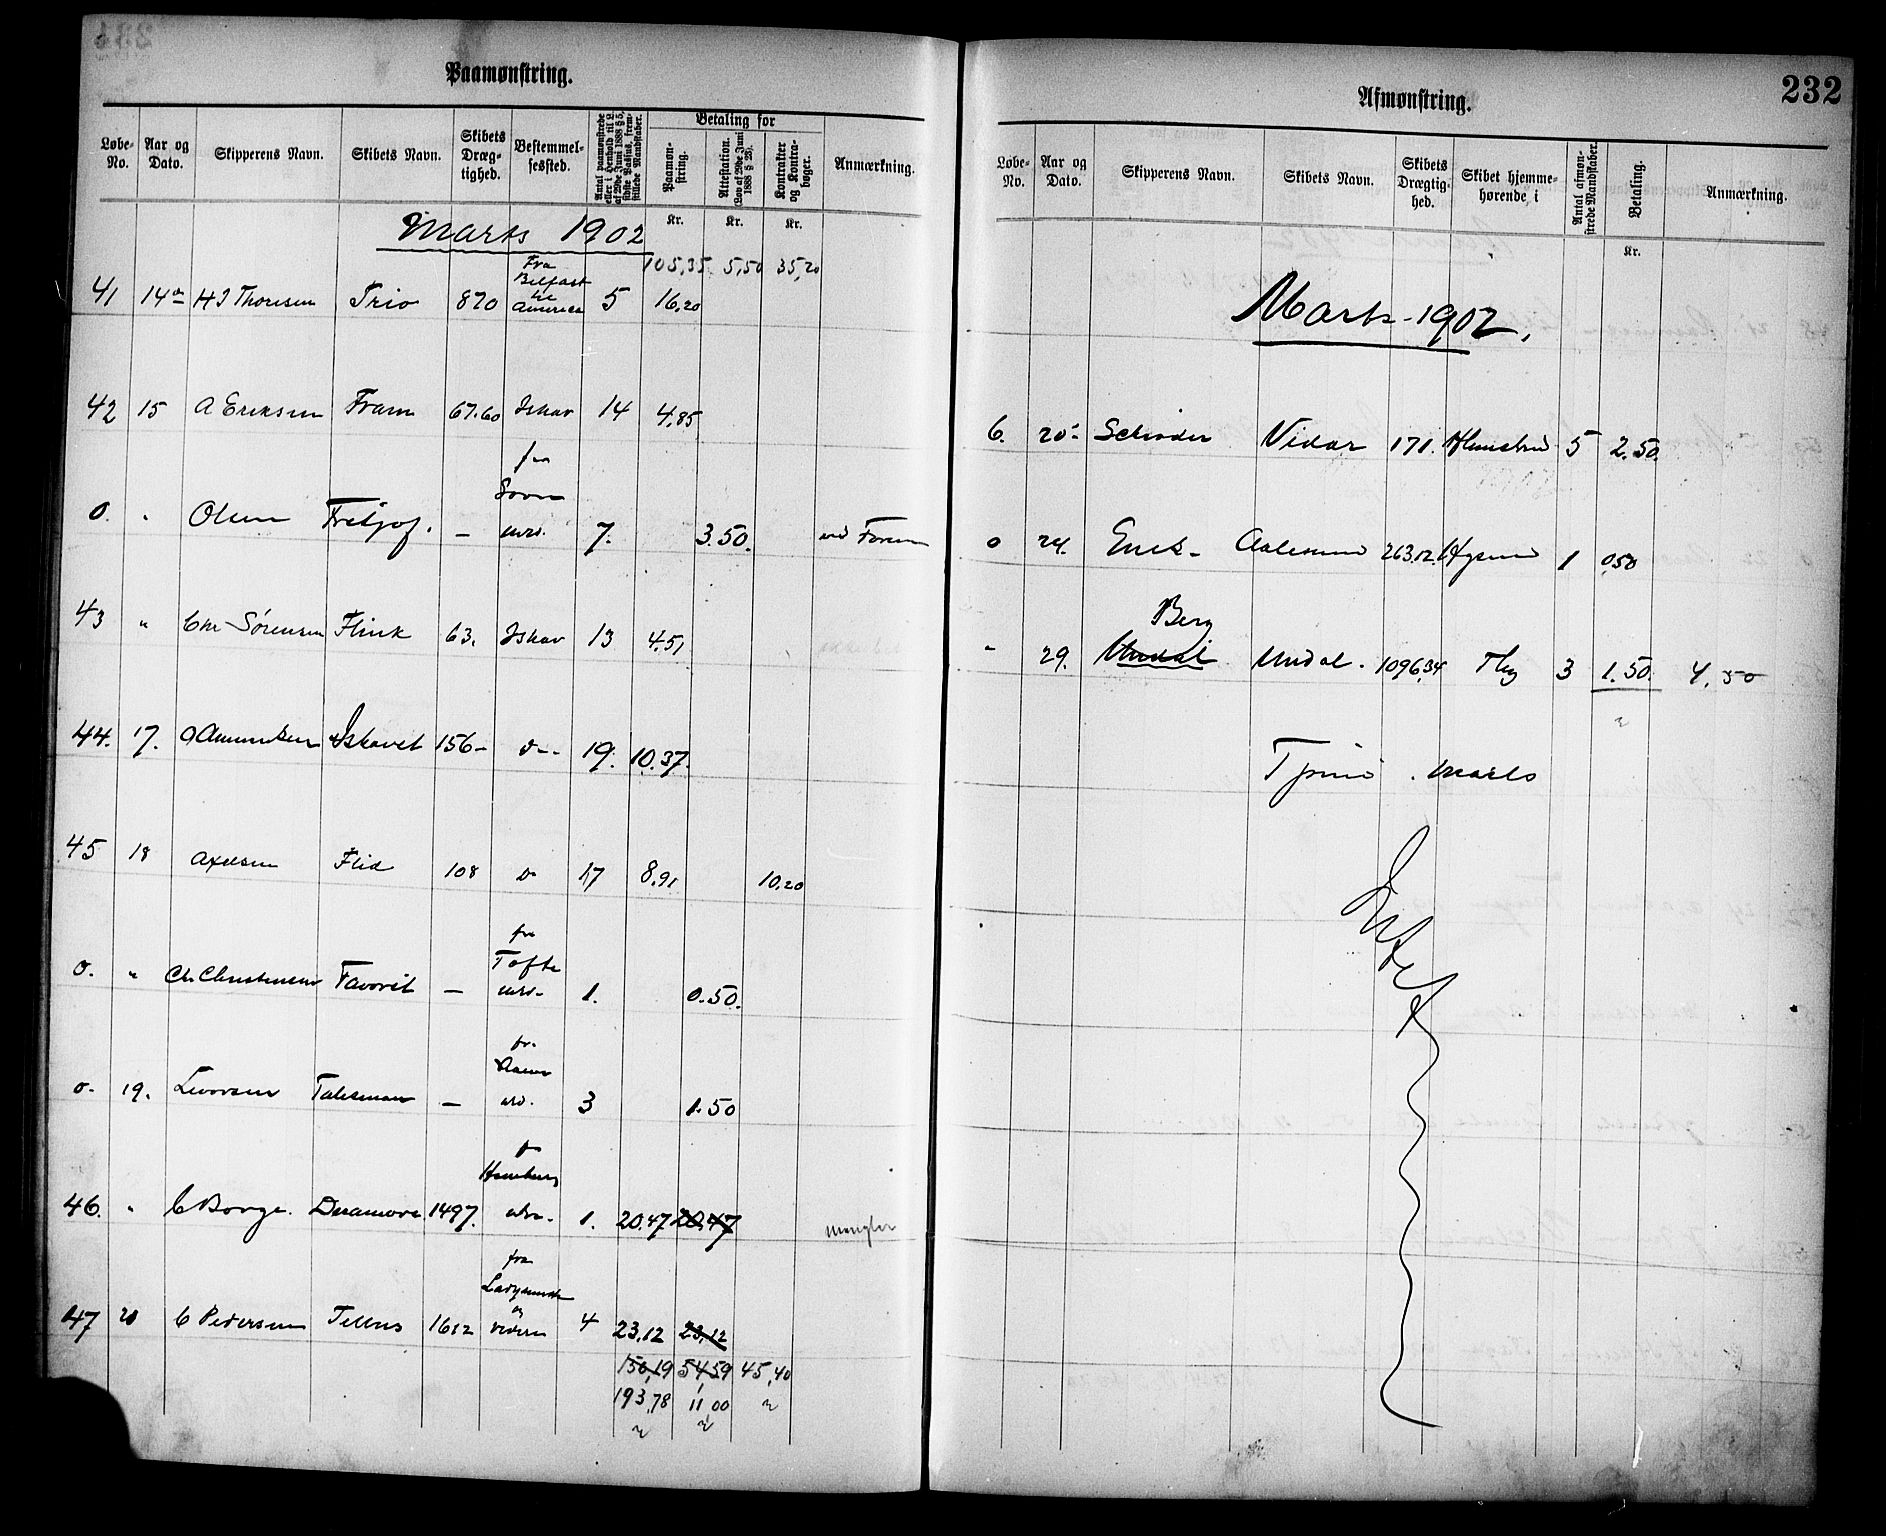 Paamønstring.
Løbe-No. Aar og Dato. Skipperens Navn. Skibets Navn. Skibets Dræg-tighed. Bestemmel-sessted. Antal paamønstrede eller i Henhold til L. af 29de Juni 1888 § 5, sidste Passus, frem-stillede Mandskaber. Betaling for Paamøn-string. Attestation. (Lov af 29de Juni 1888 § 23). Kontrakter og Kontra-bøger. Anmærkning.
Kr. Kr. Kr.
Marts 1902
105,35 5,50 35,20
41 14de H J Thoresen Trio 870 Fra Belfast til America 5 16,20
42 15 A Eriksen Fram 67.60 Ishav 14 4,85
o. " Olsen Fritjof. — fra 7. 3.50.
43 " Chr Sørensen Flink 63. Ishav 13 4.51
44. 17. Ishavet 156— 19. 10.37.
45 18 Axelsen Flid 108 17 8,91 10.20
o. " Chr Christensen Favorit — fra Tofte 1. 0.50.
o. 19. Levorsen Talisman — 3 1.50
46. " C Borge. Deramore 1497. Hamburg 1. 20.47 20,47 mangler
47 20 C Pedersen Tellus 1612 fra 4 23,12 23,12
150,19 54,59 45,40
193,78 11 00
232
Afmønstring.
Løbe-No. Aar og Dato. Skipperens Navn. Skibets Navn. Skibets Drægtig-hed. Skibet hjemme-hørende i Antal afmøn-strede Mandskaber. Betaling. Anmærkning.
Kr.
Marts - 1902.
6. 20 Schrøder Vidar 171. 5 2.50.
o 24. Aalesund 263.12. 1 0.50
Berg
" 29. Undal Undal. 1096,34 3 1.50. 4.50
Marts